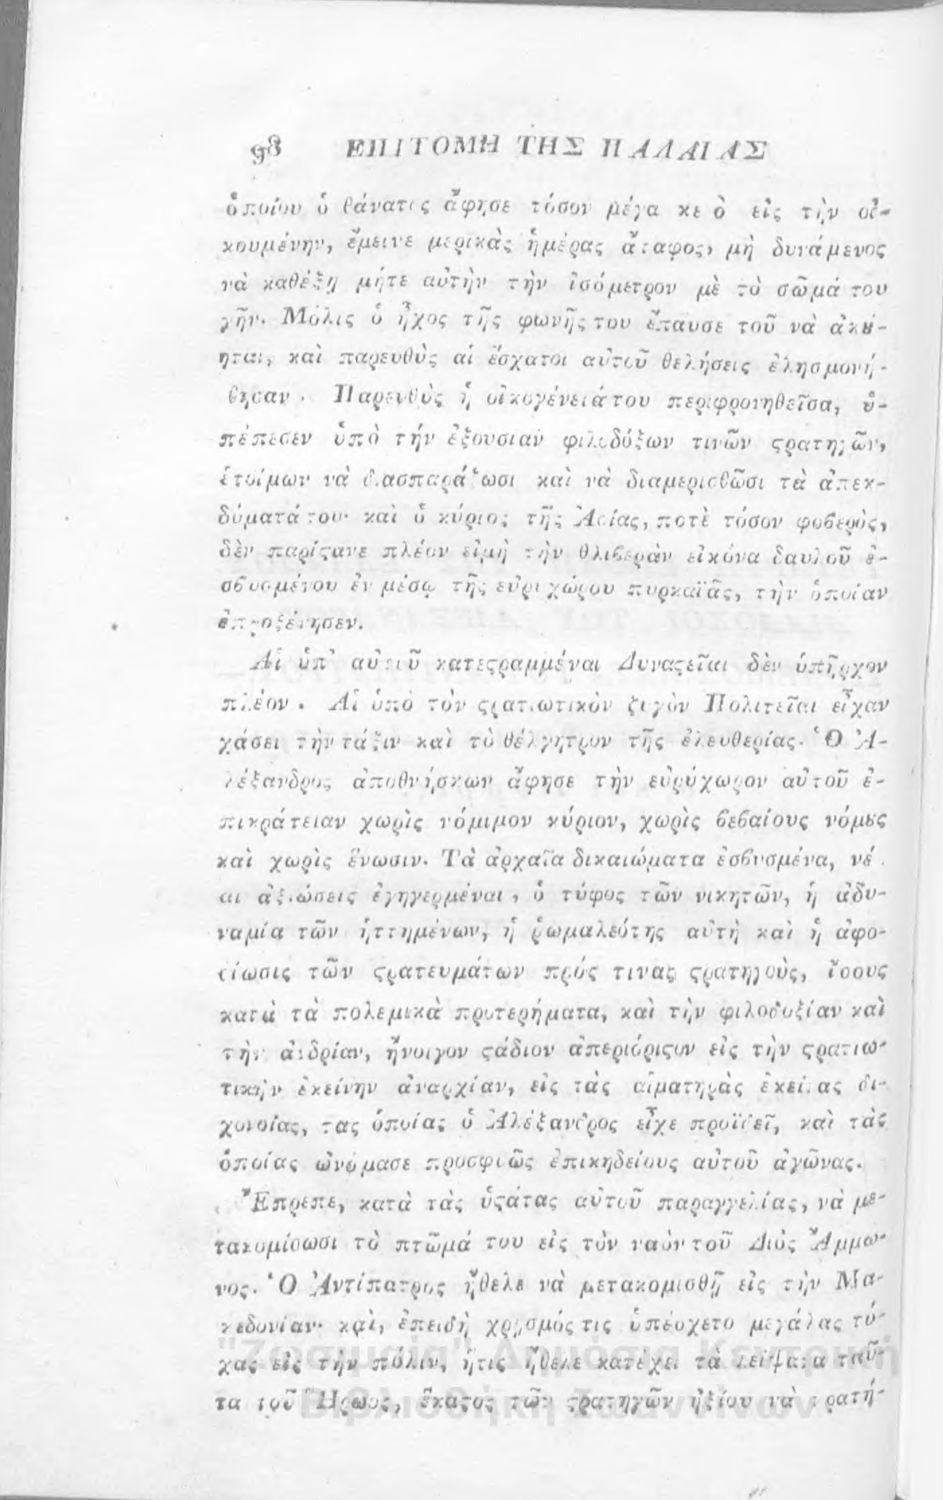 98 ΕΠΙΤΟΜΗ ΤΗΣ ΠΑΛΑΙΑΣ
ὁποίου ὁ θάνατος ἄφησε τόσον μέγα κενὸ εἰς τὴν οἰ-
κουμένην, ἔμεινε μερικὰς ἡμέρας ἄταφος, μὴ δυνάμενος
νὰ καθέξῃ μήτε αὐτὴν τὴν ἰσόμετρον μὲ τὸ σῶμά του
γῆν. Μόλις ὁ ἦχος τῆς φωνῆς του ἔπαυσε τοῦ νὰ ἀκȣ́-
ηται, καὶ παρευθὺς αἱ ἔσχατοι αὐτοῦ θελήσεις ἐλησμονή-
θησαν. Παρευθὺς ἡ οἰκογένειά του περιφρονηθεῖσα, ὑ-
πέπεσεν ὑπὸ τήν ἐξουσίαν φιλοδόξων τινῶν ϛρατηγῶν,
ἑτοίμων νὰ διασπαράξωσι καὶ νὰ διαμερισθῶσι τὰ ἀπεκ-
δύματά του· καὶ ὁ κύριος τῆς Ἀσίας, ποτὲ τόσον φοβερὸς,
δὲν παρίϛανε πλέον εἰμὴ τὴν θλιβερὰν εἰκόνα δαυλοῦ ἐ-
σβυσμένου ἐν μέσῳ τῆς εὐρυχώρου πυρκαϊᾶς, τὴν ὁποίαν
ἐπροξένησεν.
Αἱ ὑπ' αὐτοῦ κατεϛραμμέναι Δυναϛεῖαι δὲν ὑπῆρχον
πλέον. Αἱ ὑπὸ τὸν ϛρατιωτικὸν ζυγὸν Πολιτεῖαι εἶχαν
χάσει τὴν τάξιν καὶ τὸ θέλγητρον τῆς ἐλευθερίας. Ὁ Ἀ-
λέξανδρος ἀποθνήσκων ἄφησε τὴν εὐρύχωρον αὐτοῦ ἐ-
πικράτειαν χωρὶς νόμιμον κύριον, χωρὶς βεβαίους νόμȣς
καὶ χωρὶς ἕνωσιν. Τὰ ἀρχαῖα δικαιώματα ἐσβυσμένα, νέ-
αι ἀξιώσεις ἐγηγερμέναι, ὁ τύφος τῶν νικητῶν, ἡ ἀδυ-
ναμία τῶν ἡττημένων, ἡ ῥωμαλεότης αὐτὴ καὶ ἡ ἀφο-
σίωσις τῶν ϛρατευμάτων πρός τινας ϛρατηγοὺς, ἴσους
κατὰ τὰ πολεμικὰ προτερήματα, καὶ τὴν φιλοδοξίαν καὶ
τὴν ἀνδρίαν, ἤνοιγον ϛάδιον ἀπεριόριϛον εἰς τὴν ϛρατιω-
τικὴν ἐκείνην ἀναρχίαν, εἰς τὰς αἱματηρὰς ἐκείνας δι-
χονοίας, τας ὁποίας ὁ Ἀλέξανδρος εἶχε προϊδεῖ, καὶ τὰς
ὁποίας ὠνόμασε προσφυῶς ἐπικηδείους αὐτοῦ ἀγῶνας.
Ἔπρεπε, κατὰ τὰς ὑϛάτας αὐτοῦ παραγγελίας, νὰ με-
τακομίσωσι τὸ πτῶμά του εἰς τὸν ναὸν τοῦ Διὸς Ἄμμω-
νος. Ὁ Ἀντίπατρος ἤθελε νὰ μετακομισθῇ εἰς τὴν Μα-
κεδονίαν· καὶ, ἐπειδὴ χρησμός τις ὑπέσχετο μεγάλας τύ-
χας εἰς τὴν πόλιν, ἥτις ἤθελε κατέχει τὰ λείψανα ταῦ-
τα τοῦ Ἥρωος, ἕκαϛος τῶν ϛρατηγῶν ἠξίου νὰ κρατή-
"Ζωσιμαία" Δημόσια Κεντρική
Βιβλιοθήκη Ιωαννίνων